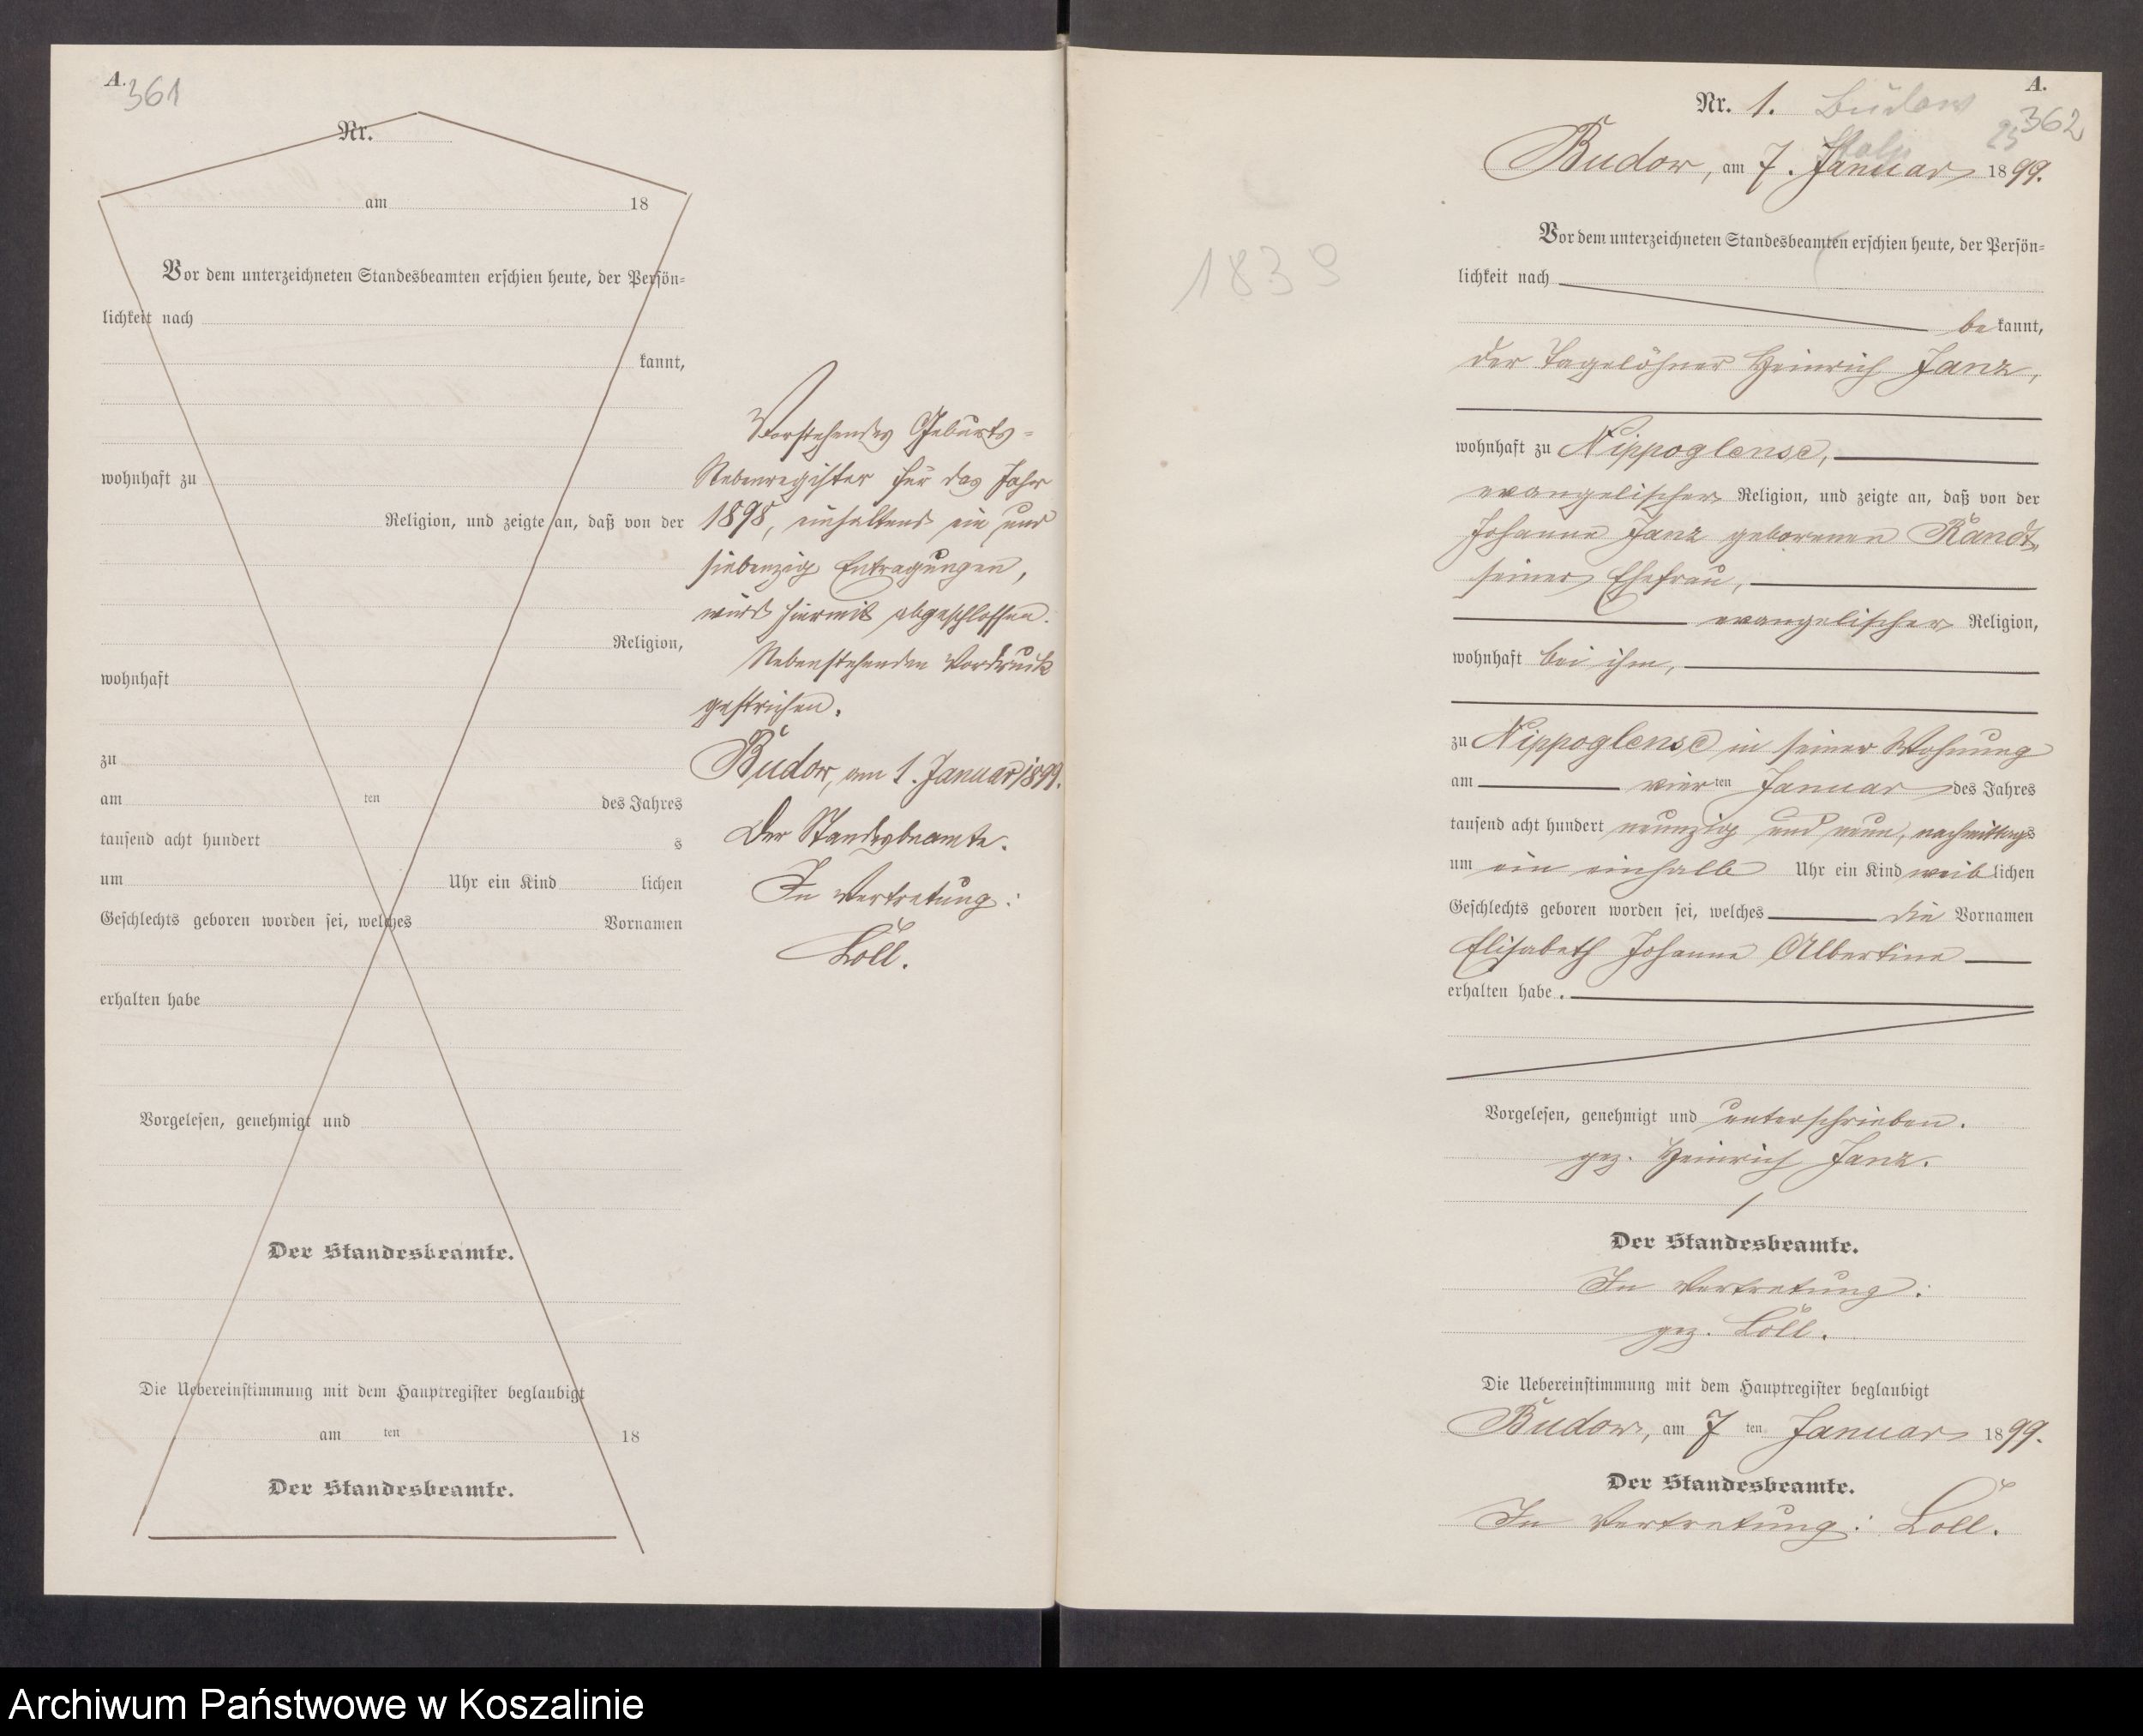 A.
361
Nr.
am 18
Vor dem unterzeichneten Standesbeamten erschien heute, der Persön=
lichkeit nach
kannt,
wohnhaft zu
Religion, und zeigte an, daß von der
Religion,
wohnhaft
zu
am ten des Jahres
tausend acht hundert s
um Uhr ein Kind lichen
Geschlechts geboren worden sei, welches Vornamen
erhalten habe
Vorgelesen, genehmigt und
Der Standesbeamte.
Die Uebereinstimmung mit dem Hauptregister beglaubigt
am ten 18
Der Standesbeamte.
Vorstehendes Geburts-
Nebenregister für das Jahr
1898, enthaltend ein und
siebenzig Eintragungen,
wird hiermit abgeschlossen.
Nebenstehenden Vordruck
gestrichen.
Budow, am 1. Januar 1899.
Der Standesbeamte.
In Vertretung:
Löll.
1839
A.
Nr. 1. Budow
362
25
Stolp
Budow, am 7. Januar 1899.
Vor dem unterzeichneten Standesbeamten erschien heute, der Persön=
lichkeit nach
be kannt,
der Tagelöhner Heinrich Janz,
wohnhaft zu Nippoglense,
evangelischer Religion, und zeigte an, daß von der
Johanne Janz geborenen Randt,
seiner Ehefrau,
evangelischer Religion,
wohnhaft bei ihm,
zu Nippoglense in seiner Wohnung
am vier ten Januar des Jahres
tausend acht hundert neunzig und neun, nachmittags
um ein einhalb Uhr ein Kind weib lichen
Geschlechts geboren worden sei, welches die Vornamen
Elisabeth Johanne Albertine
erhalten habe.
Vorgelesen, genehmigt und unterschrieben.
gez. Heinrich Janz.
Der Standesbeamte.
In Vertretung:
gez. Löll.
Die Uebereinstimmung mit dem Hauptregister beglaubigt
Budow, am 7 ten Januar 1899.
Der Standesbeamte.
In Vertretung: Löll.
Archiwum Państwowe w Koszalinie